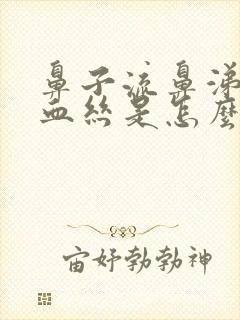 鼻子流鼻涕
血丝是怎麼
宙好勃勃神